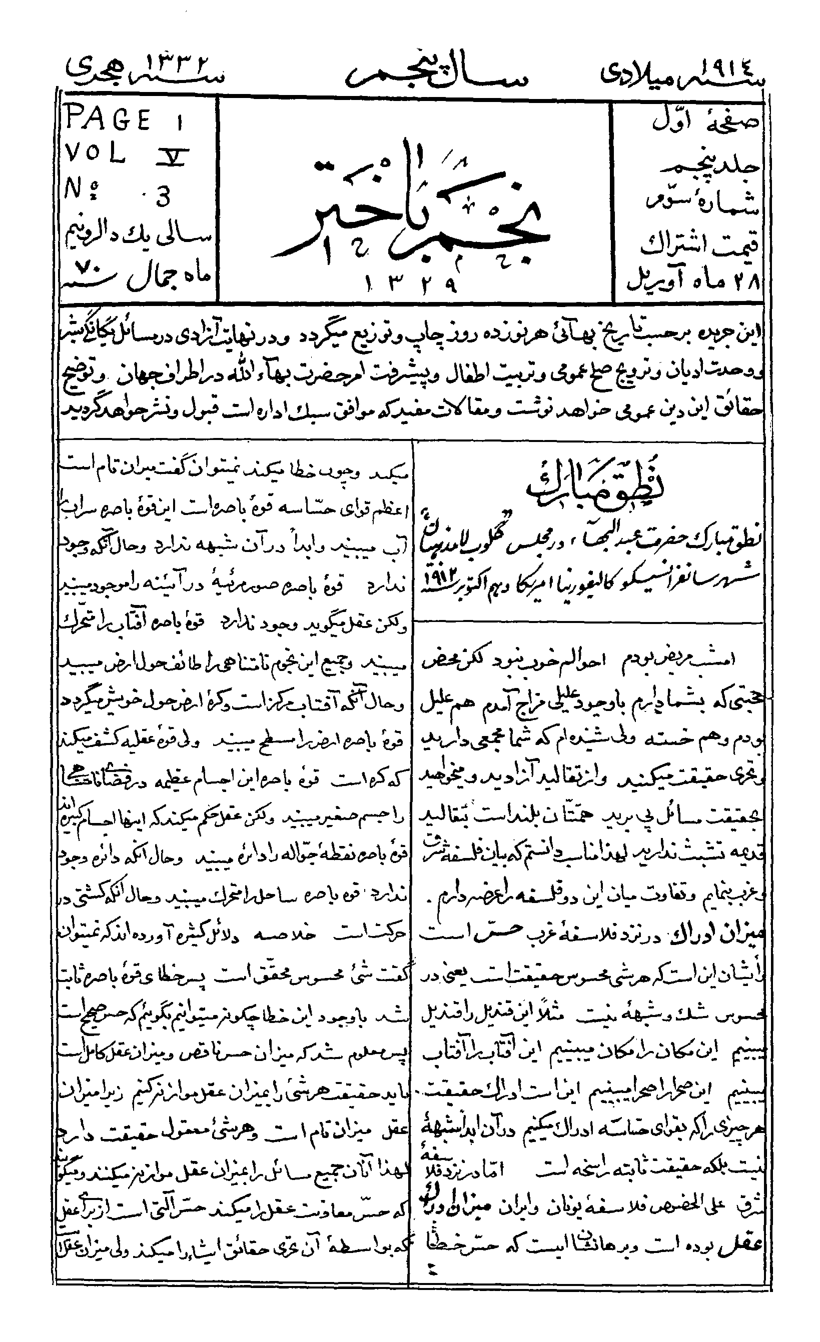 سنه ۱۹۱٤ میلادی
سال پنجم
سنه ۱۳۳۲ هجری
صفحهٔ اوّل
جلد پنجم
شمارهٔ سوّم
قیمت اشتراك
۲۸ ماه آوریل
نجم باختر
۱۳۲۹
PAGE 1
VOL V
Nº 3
سالی یك دالر و نیم
ماه جمال سنه ۷۰
این جریده برحسب تاریخ بهائی هر نوزده روز چاپ و توزیع میگردد و در نهایت آزادی در مسائل یگانگی بشر
و وحدت ادیان و ترویج صلح عمومی و تربیت اطفال و پیشرفت امر حضرت بهآء الله در اطراف جهان و توضیح
حقائق این دین عمومی خواهد نوشت و مقالات مفید که موافق سبك اداره است قبول و نشر خواهد گردید
نُطق مبارك
نطق مبارك حضرت عبدالبهآء در مجلس "کلوب لامذهبان"
شهر سانفرانسیسکو کالیفورنیا امریکا دهم اکتوبر سنه ۱۹۱۲
امشب مریض بودم احوالم خوب نبود لکن محض
محبتی که بشما دارم باوجود علیلی مزاج آمدم هم علیل
بودم وهم خسته ولی شنیده‌ام که شما مجمعی دارید
و تحری حقیقت میکنید و از تقالید آزادید و میخواهید
بحقیقت مسائل پی برید همّتتان بلند است بتقالید
قدیمه تشبث ندارید لهذا مناسب دانستم که بیان فلسفهٔ شرق
و غرب بنمایم و تفاوت میان این دو فلسفه را عرضه دارم .
میزان ادراك در نزد فلاسفهٔ غرب حسّ است
رأیشان این است که هر شیٔ محسوس حقیقت است یعنی در
محسوس شك و شبهه نیست مثلًا این قندیل را قندیل
میبینیم این مکان را مکان میبینیم این آفتاب را آفتاب
میبینیم این صحرا را صحرا میبینیم این است ادراك حقیقت .
هر چیزی را که بقوای حسّاسه ادراك میکنیم در آن ابداً شبههٔ
نیست بلکه حقیقت ثابته راسخه است امّا در نزد فلاسفهٔ
شرق علی الخصوص فلاسفهٔ یونان و ایران میزان ادراك
عقل بوده است و برهانشان این است که حسّ خطا
میکند و چون خطا میکند نمیتوان گفت میزان تام است
اعظم قوای حسّاسه قوهٔ باصره است این قوهٔ باصره سراب را
آب میبیند و ابداً در آن شبهه ندارد و حال آنکه وجود
ندارد قوهٔ باصره صور مرئیهٔ در آئینه را موجود میبیند
ولکن عقل میگوید وجود ندارد قوهٔ باصره آفتاب را متحرّك
میبیند و جمیع این نجوم نامتناهی را طائف حول ارض میبیند
و حال آنکه آفتاب مرکز است و کرهٔ ارض حول خویش میگردد
قوهٔ باصره ارض را مسطح میبیند ولی قوهٔ عقلیه کشف میکند
که کره است قوهٔ باصره این اجسام عظیمه در فضای نامتناهی
را جسم صغیر میبیند ولکن عقل حکم میکند که اینها اجسام کبیره‌اند
قوهٔ باصره نقطهٔ جوّاله را دائره میبیند و حال آنکه دائره وجود
ندارد قوه باصره ساحل را متحرك میبیند و حال آنکه کشتی در
حرکت است خلاصه دلائل کثیره آورده‌اند که نمیتوان
گفت شیٔ محسوس محقّق است پس خطای قوهٔ باصره ثابت
شد باوجود این خطا چگونه میتوانیم بگوئیم که حس صحیح است
پس معلوم شد که میزان حس ناقص و میزان عقل کامل است
باید حقیقت هر شیٔ را بمیزان عقل موازنه کنیم زیرا میزان
عقل میزان تام است و هر شیٔ معقول حقیقت دارد
لهذا آنان جمیع مسائل را بمیزان عقل موازنه میکنند و میگویند
که حسّ معاونت عقل را میکند حسّ آلتی است از برای عقل
که بواسطهٔ آن تحری حقائق اشیاء را میکند ولی میزان عقل است